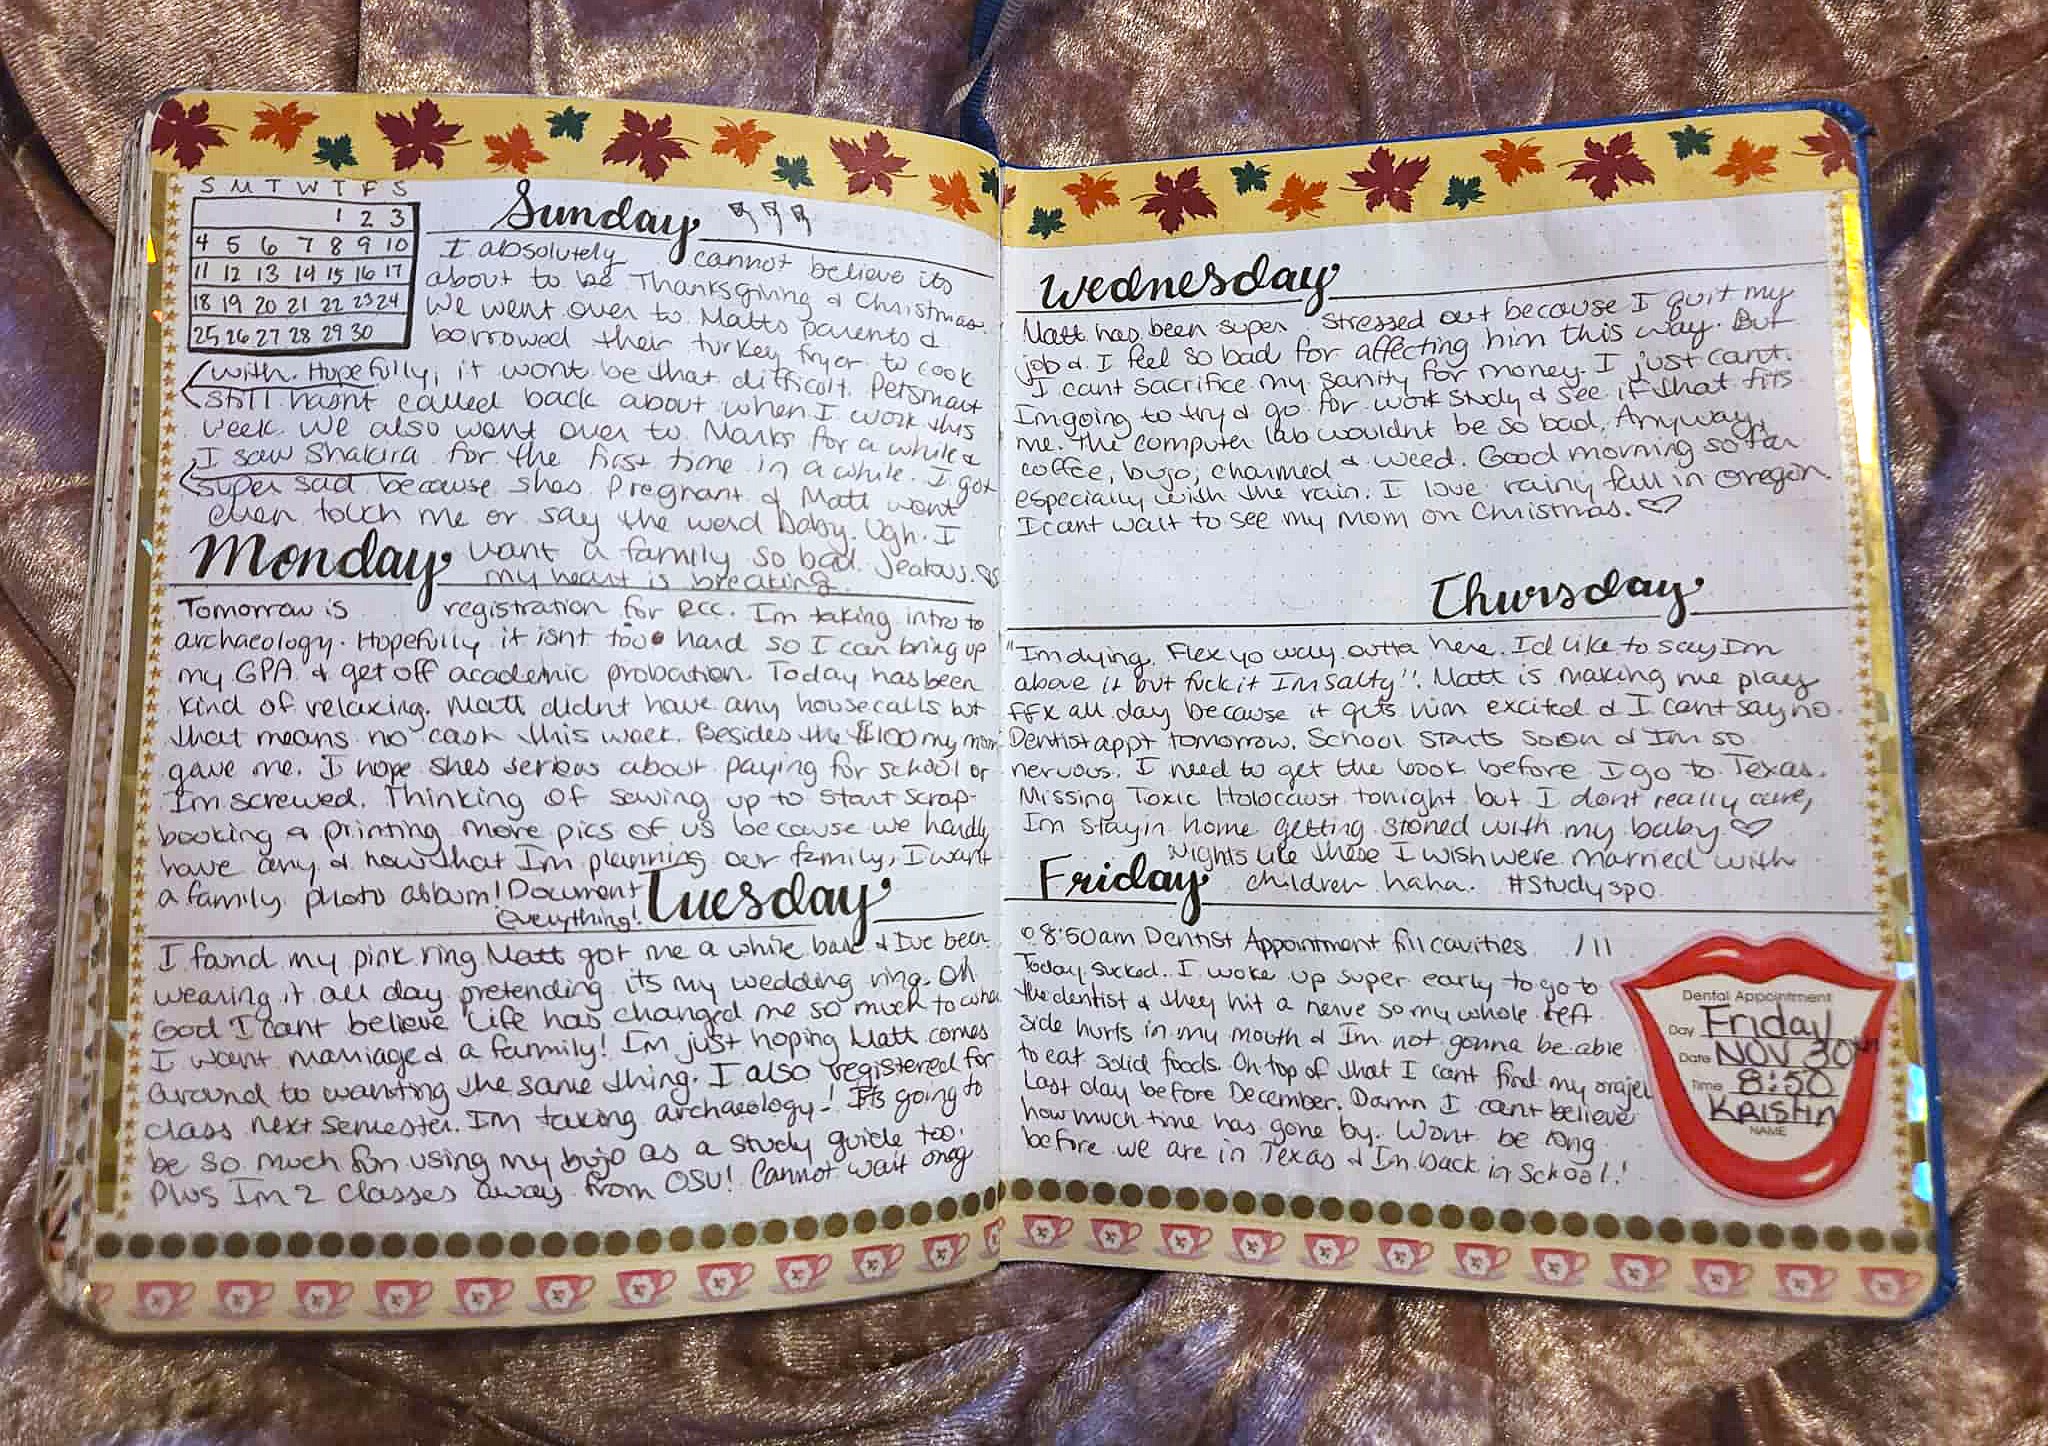 S M T W T F S
1 2 3
4 5 6 7 8 9 10
11 12 13 14 15 16 17
18 19 20 21 22 23 24
25 26 27 28 29 30
Sunday
I absolutely cannot believe its
about to be Thanksgiving & Christmas.
We went over to Matts parents &
borrowed their turkey fryer to cook
with. Hopefully, it wont be that difficult. Petsmart
still hasnt called back about when I work this
week. We also went over to Marks for a while &
I saw Shakira for the first time in a while. I got
super sad because shes pregnant & Matt wont
even touch me or say the word baby. Ugh. I
want a family so bad. Jealous.
my heart is breaking
Monday
Tomorrow is registration for RCC. Im taking intro to
archaeology. Hopefully it isnt too hard so I can bring up
my GPA & get off academic probation. Today has been
kind of relaxing. Matt didnt have any housecalls but
that means no cash this week. Besides the $100 my mom
gave me. I hope shes serious about paying for school or
Im screwed. Thinking of saving up to start scrap-
booking & printing more pics of us because we hardly
have any & now that Im planning our family, I want
a family photo album! Document
everything!
Tuesday
I found my pink ring Matt got me a while back & Ive been
wearing it all day pretending its my wedding ring. Oh
God I cant believe life has changed me so much to where
I want marriage & a family! Im just hoping Matt comes
around to wanting the same thing. I also registered for
class next semester. Im taking archaeology! Its going to
be so much fun using my bujo as a study guide too.
Plus Im 2 classes away from OSU! Cannot wait omg
Wednesday
Matt has been super stressed out because I quit my
job & I feel so bad for affecting him this way. But
I cant sacrifice my sanity for money. I just cant.
Im going to try & go for work study & see if that fits
me. The computer lab wouldnt be so bad. Anyway,
coffee, bujo, charmed & weed. Good morning so far
especially with the rain. I love rainy fall in Oregon
I cant wait to see my Mom on Christmas.
Thursday
"Im dying. Flex yo way outta here. Id like to say Im
above it but fuck it Im salty". Matt is making me play
FFX all day because it gets him excited & I cant say no.
Dentist appt tomorrow. School starts soon & Im so
nervous. I need to get the book before I go to Texas.
Missing Toxic Holocaust tonight but I dont really care,
Im stayin home getting stoned with my baby
Nights like these I wish were married with
children haha. #Studyspo
Friday
8:50am Dentist Appointment fill cavities
Today sucked. I woke up super early to go to
the dentist & they hit a nerve so my whole left
side hurts in my mouth & Im not gonna be able
to eat solid foods. On top of that I cant find my orajel
Last day before December. Damn I cant believe
how much time has gone by. Wont be long
before we are in Texas & Im back in School!
Dental Appointment
Day Friday
Date NOV 30th
Time 8:50
Kristin
NAME